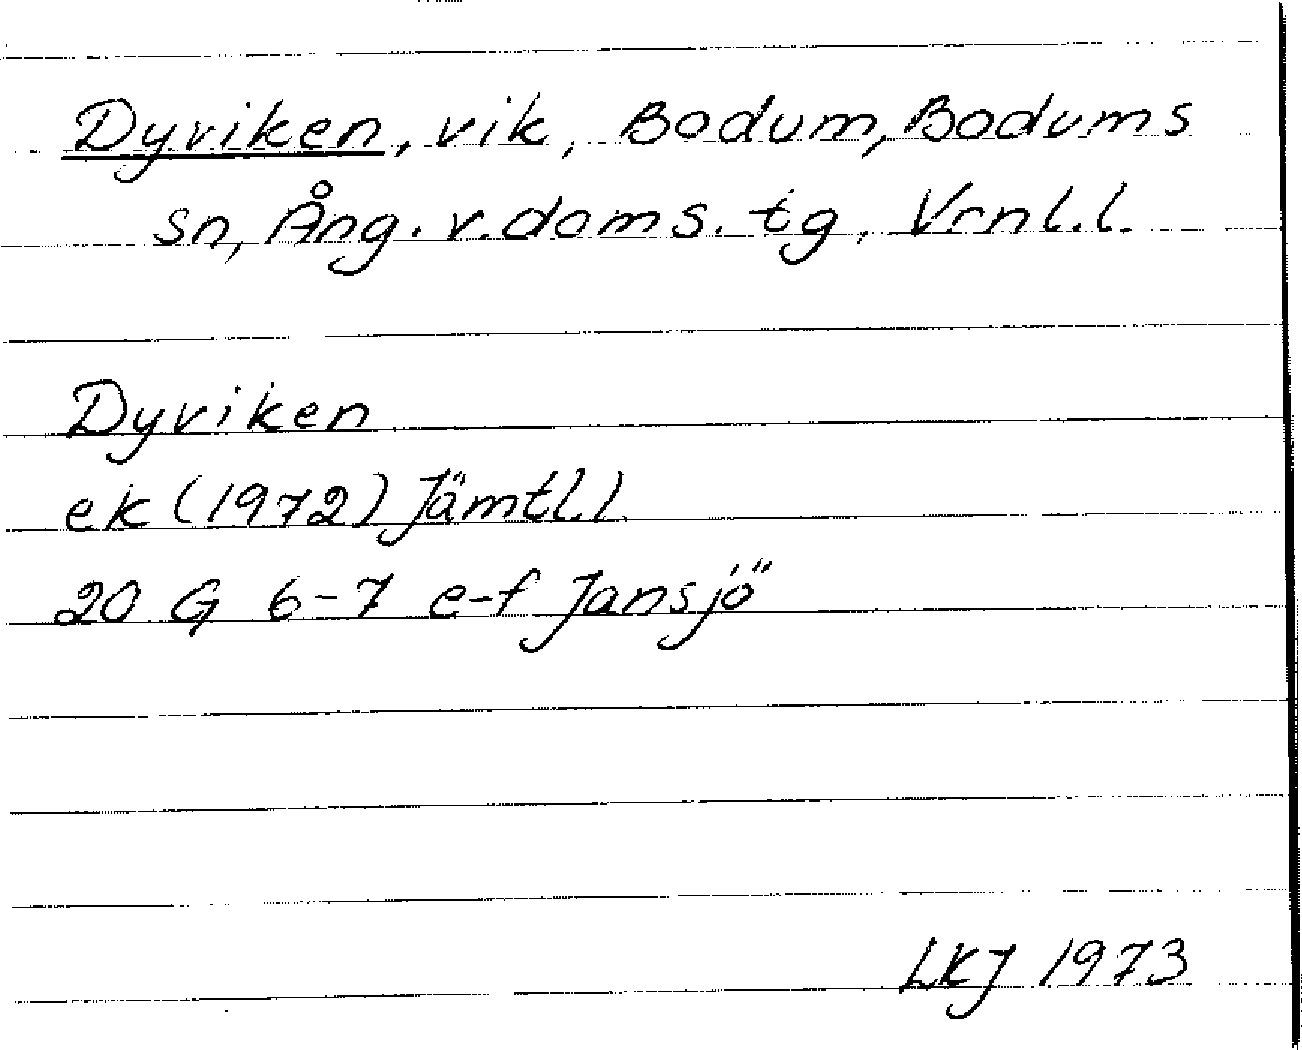 Dyviken, vik, Bodum, Bodums
sn, Ång. v. doms. tg, Vrnl.l.
Dyviken
ek (1972) Jämtl.l
20 G 6-7 e-f Jansjö
LKJ 1973